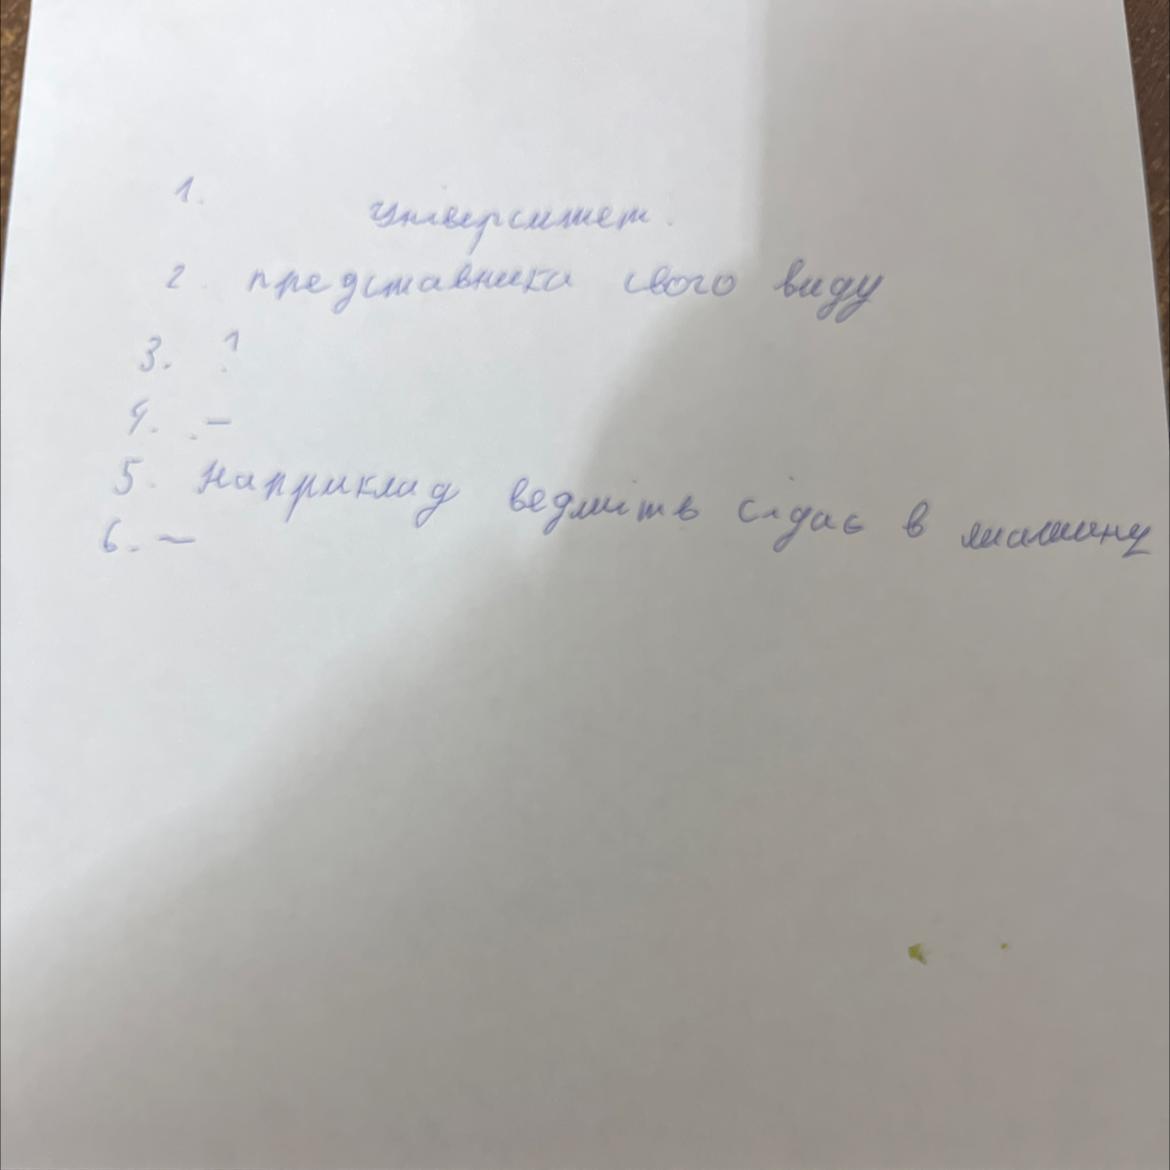 1. університет.
2. представника свого виду
3. ?
4. . -
5. Наприклад ведмідь сідає в машину
6. -